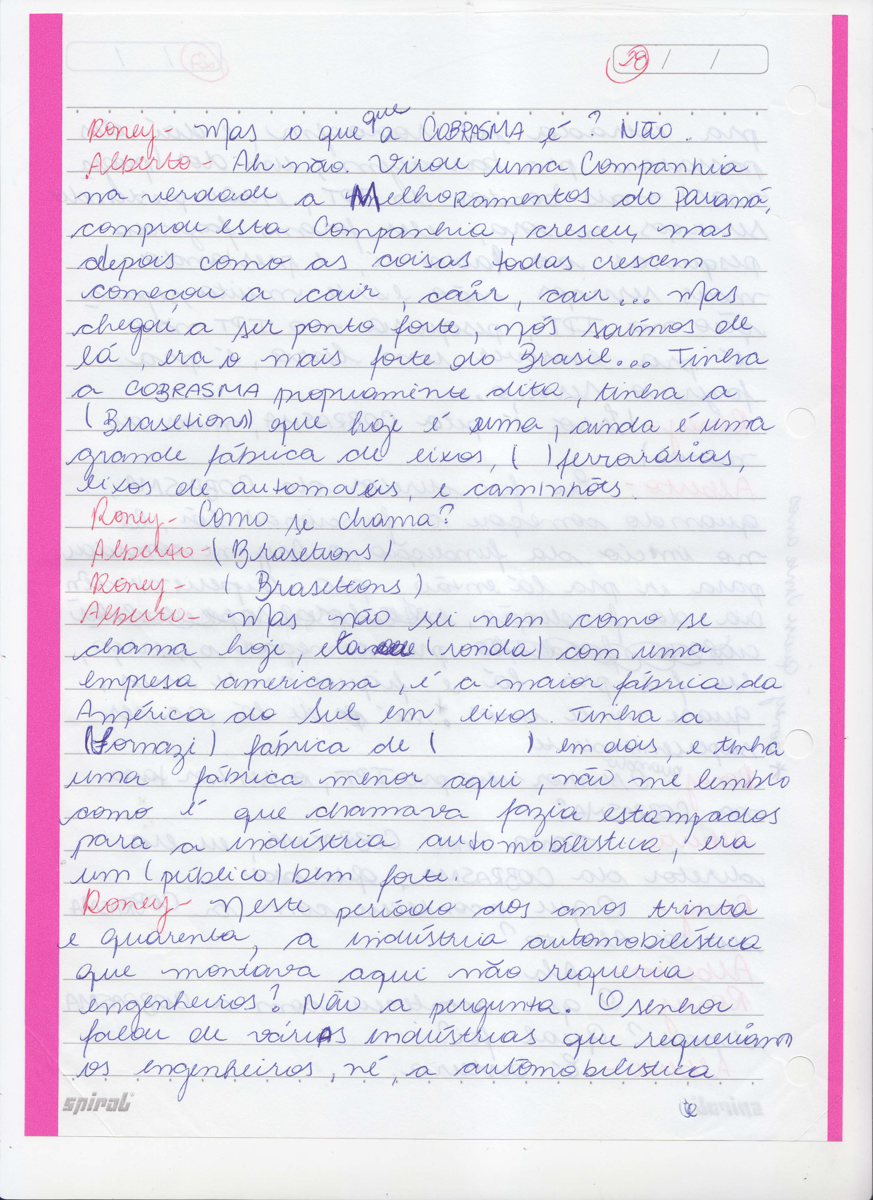 28 / /
que
Roney - Mas o que a COBRASMA é? Não.
Alberto - Ah não. Virou uma Companhia
na verdade a Melhoramentos do Paraná,
comprou esta Companhia, cresceu, mas
depois como as coisas todas crescem
começou a cair, cair, cair... Mas
chegou a ser ponto forte, nós saímos de
lá, era o mais forte do Brasil... Tinha
a COBRASMA propriamente dita, tinha a
(Brasetions) que hoje é uma, ainda é uma
grande fábrica de eixos, ( ) ferrorárias,
eixos de automavéis, e caminhões.
Roney - Como se chama?
Alberto - (Brasetions)
Roney - (Brasetions)
Alberto - Mas não sei nem como se
chama hoje, (ronda) com uma
empresa americana, é a maior fábrica da
América do Sul em eixos. Tinha a
(Fornazi) fábrica de ( ) em dois, e tinha
uma fábrica menor aqui, não me lembro
como é que chamava fazia estampados
para a indústria automobilística, era
um (público) bem forte.
Roney - Neste período dos anos trinta
e quarenta, a indústria automobilística
que montava aqui não requeria
engenheiros? Não a pergunta. O senhor
falou de várias indústrias que requeriam
os engenheiros, né, a automobilística
spiral